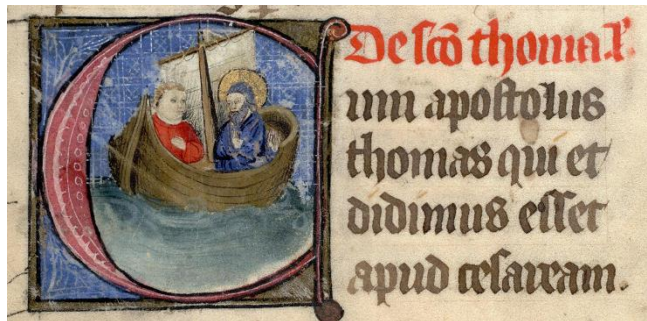 De scō thoma
Cum apostolus
thomas qui et
didimus esset
apud cesaream.